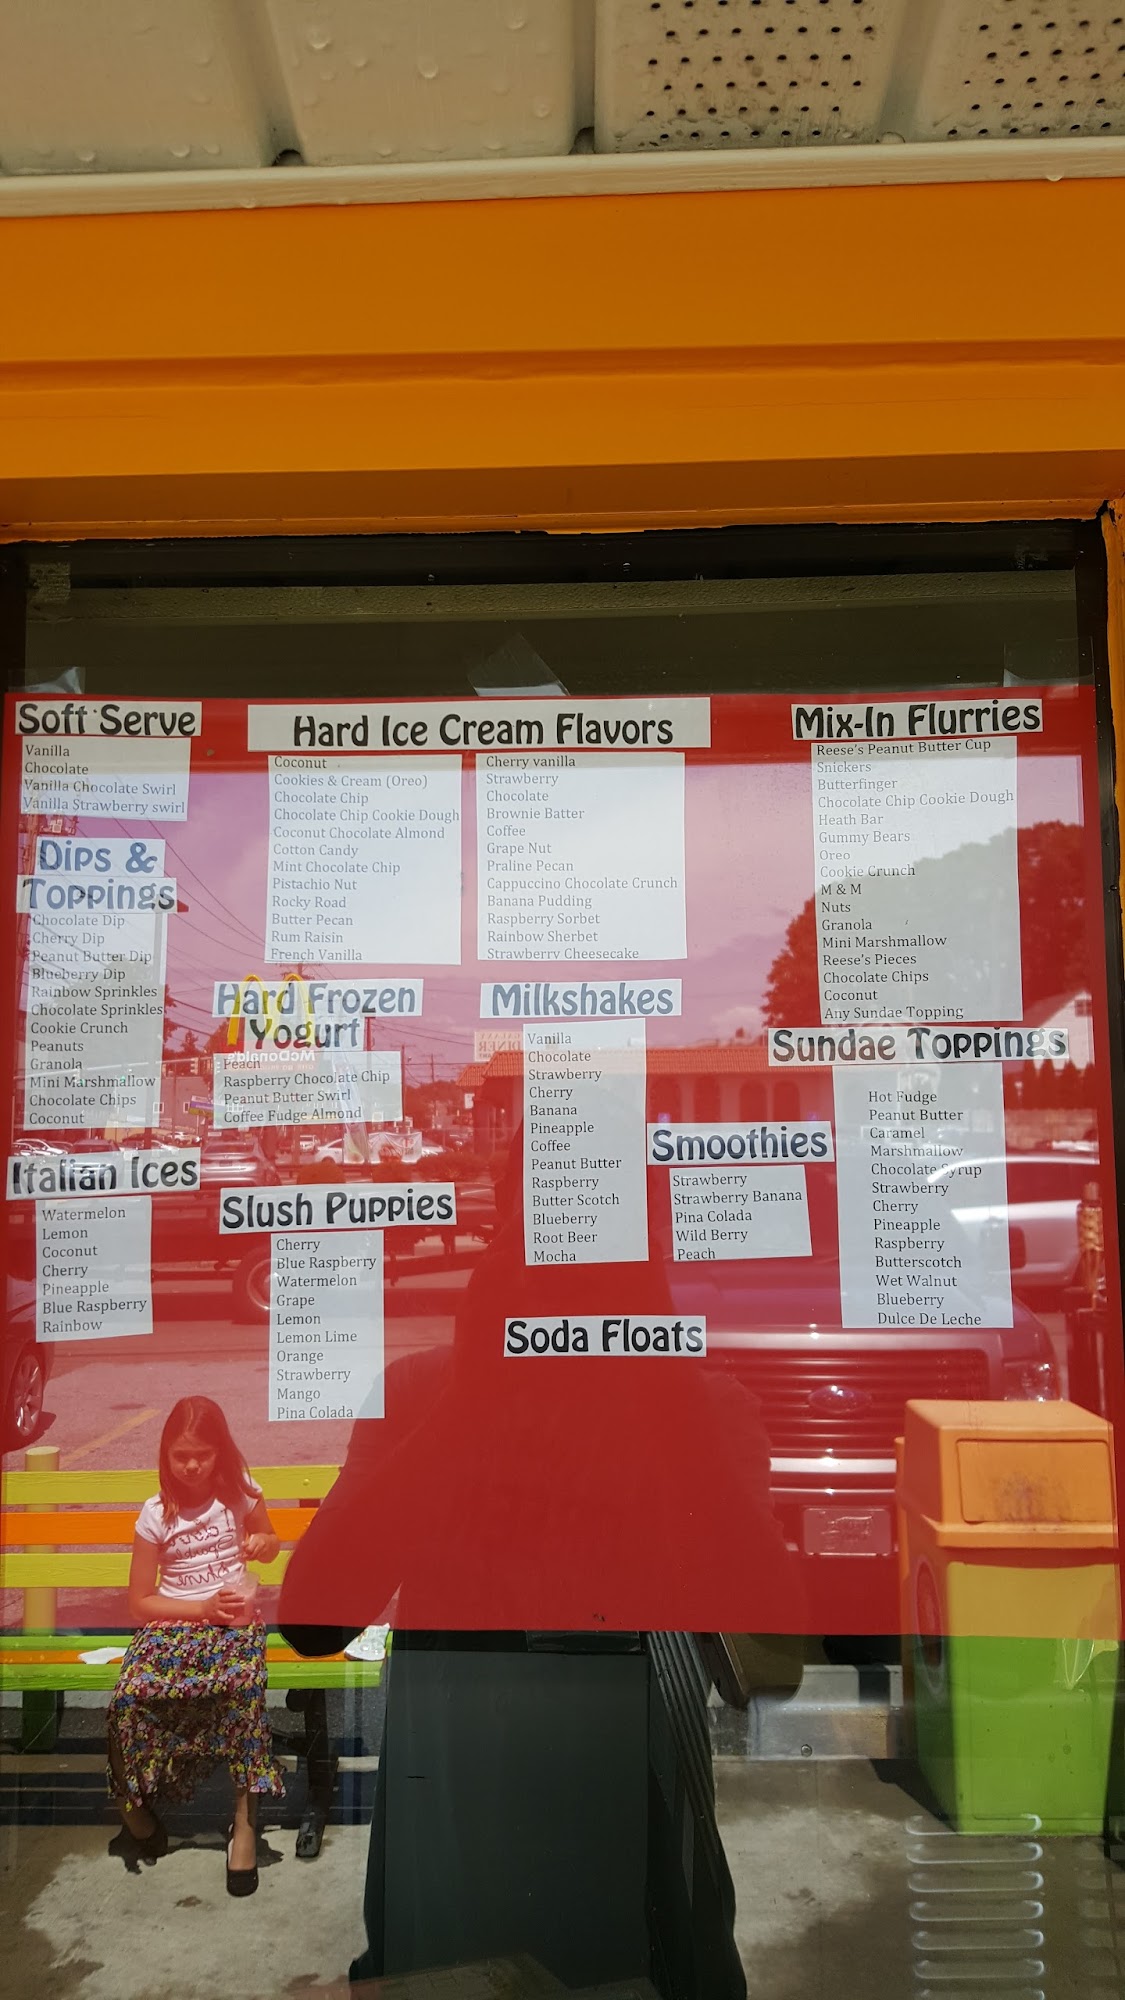 Soft Serve
Vanilla
Chocolate
Vanilla Chocolate Swirl
Vanilla Strawberry swirl
Dips &
Toppings
Chocolate Dip
Cherry Dip
Peanut Butter Dip
Blueberry Dip
Rainbow Sprinkles
Chocolate Sprinkles
Cookie Crunch
Peanuts
Granola
Mini Marshmallow
Chocolate Chips
Coconut
Italian Ices
Watermelon
Lemon
Coconut
Cherry
Pineapple
Blue Raspberry
Rainbow
Hard Ice Cream Flavors
Coconut
Cookies & Cream (Oreo)
Chocolate Chip
Chocolate Chip Cookie Dough
Coconut Chocolate Almond
Cotton Candy
Mint Chocolate Chip
Pistachio Nut
Rocky Road
Butter Pecan
Rum Raisin
French Vanilla
Cherry vanilla
Strawberry
Chocolate
Brownie Batter
Coffee
Grape Nut
Praline Pecan
Cappuccino Chocolate Crunch
Banana Pudding
Raspberry Sorbet
Rainbow Sherbet
Strawberry Cheesecake
Hard Frozen
Yogurt
Peach
Raspberry Chocolate Chip
Peanut Butter Swirl
Coffee Fudge Almond
McDonald's
Slush Puppies
Cherry
Blue Raspberry
Watermelon
Grape
Lemon
Lemon Lime
Orange
Strawberry
Mango
Pina Colada
Milkshakes
Vanilla
Chocolate
Strawberry
Cherry
Banana
Pineapple
Coffee
Peanut Butter
Raspberry
Butter Scotch
Blueberry
Root Beer
Mocha
Smoothies
Strawberry
Strawberry Banana
Pina Colada
Wild Berry
Peach
Soda Floats
Mix-In Flurries
Reese's Peanut Butter Cup
Snickers
Butterfinger
Chocolate Chip Cookie Dough
Heath Bar
Gummy Bears
Oreo
Cookie Crunch
M & M
Nuts
Granola
Mini Marshmallow
Reese's Pieces
Chocolate Chips
Coconut
Any Sundae Topping
Sundae Toppings
Hot Fudge
Peanut Butter
Caramel
Marshmallow
Chocolate Syrup
Strawberry
Cherry
Pineapple
Raspberry
Butterscotch
Wet Walnut
Blueberry
Dulce De Leche